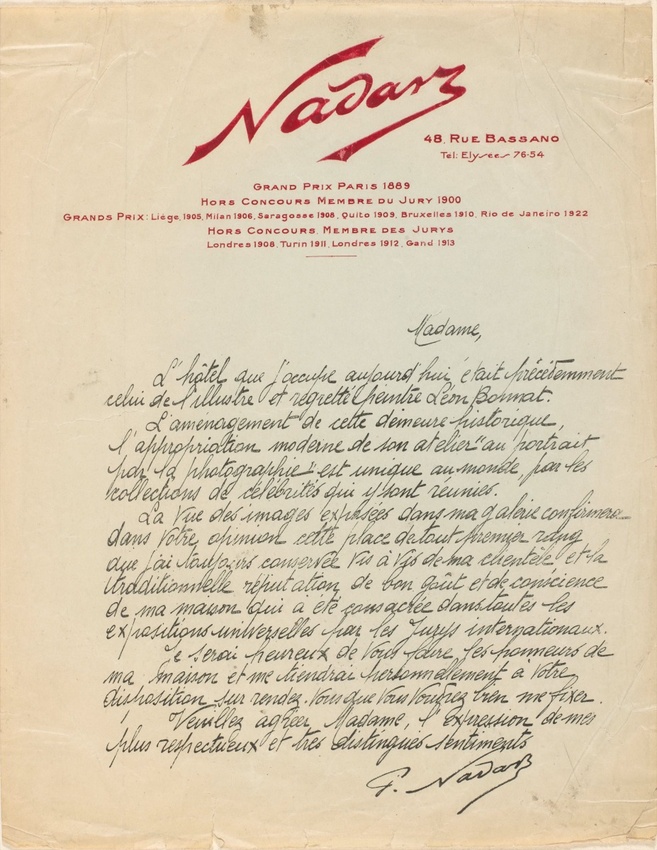 Nadar
48, Rue Bassano
Tel: Elysees 76-54
Grand Prix Paris 1889
Hors Concours Membre du Jury 1900
Grands Prix: Liège, 1905, Milan 1906, Saragosse 1908, Quito 1909, Bruxelles 1910, Rio de Janeiro 1922
Hors Concours, Membre des Jurys
Londres 1908, Turin 1911, Londres 1912, Gand 1913
Madame,
L'hôtel que j'occupe aujourd'hui était précédemment
celui de l'illustre et regretté Peintre Léon Bonnat.
L'aménagement de cette demeure historique,
l'appropriation moderne de son atelier "au portrait
par la photographie" est unique au monde par les
collections de célébrités qui y sont réunies.
La vue des images exposées dans ma galerie confirmera
dans votre opinion cette place de tout premier rang
que j'ai toujours conservée vis à vis de ma clientèle, et la
traditionnelle réputation de bon goût et de conscience
de ma maison qui a été consacrée dans toutes les
expositions universelles par les Jurys internationaux.
Je serai heureux de vous faire les honneurs de
ma maison et me tiendrai personnellement à votre
disposition sur rendez-vous que vous voudrez bien me fixer.
Veuillez agréer, Madame, l'expression de mes
plus respectueux et très distingués sentiments
P. Nadar